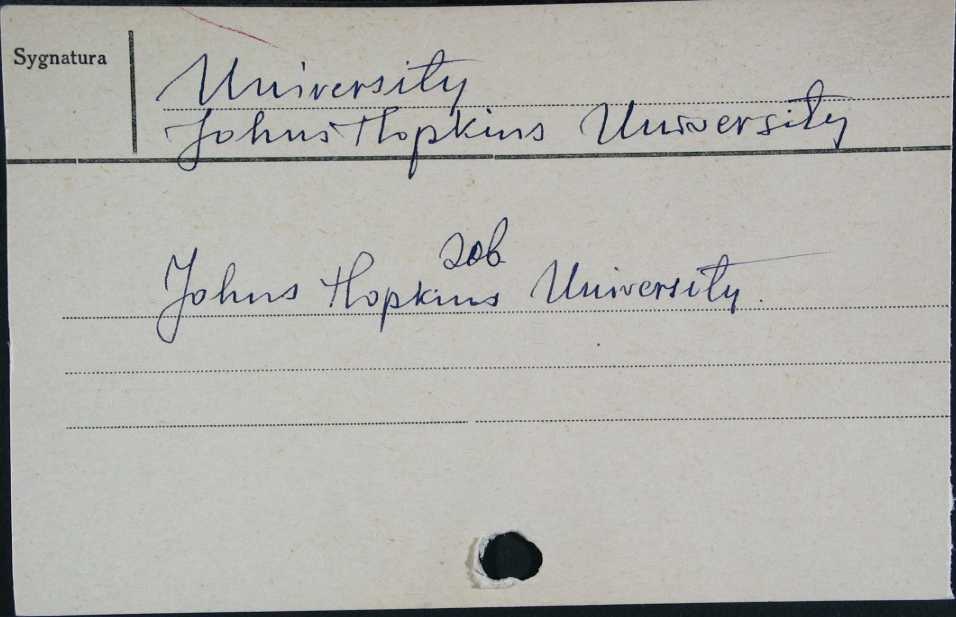 Sygnatura
University
Johns Hopkins University
zob
Johns Hopkins University.